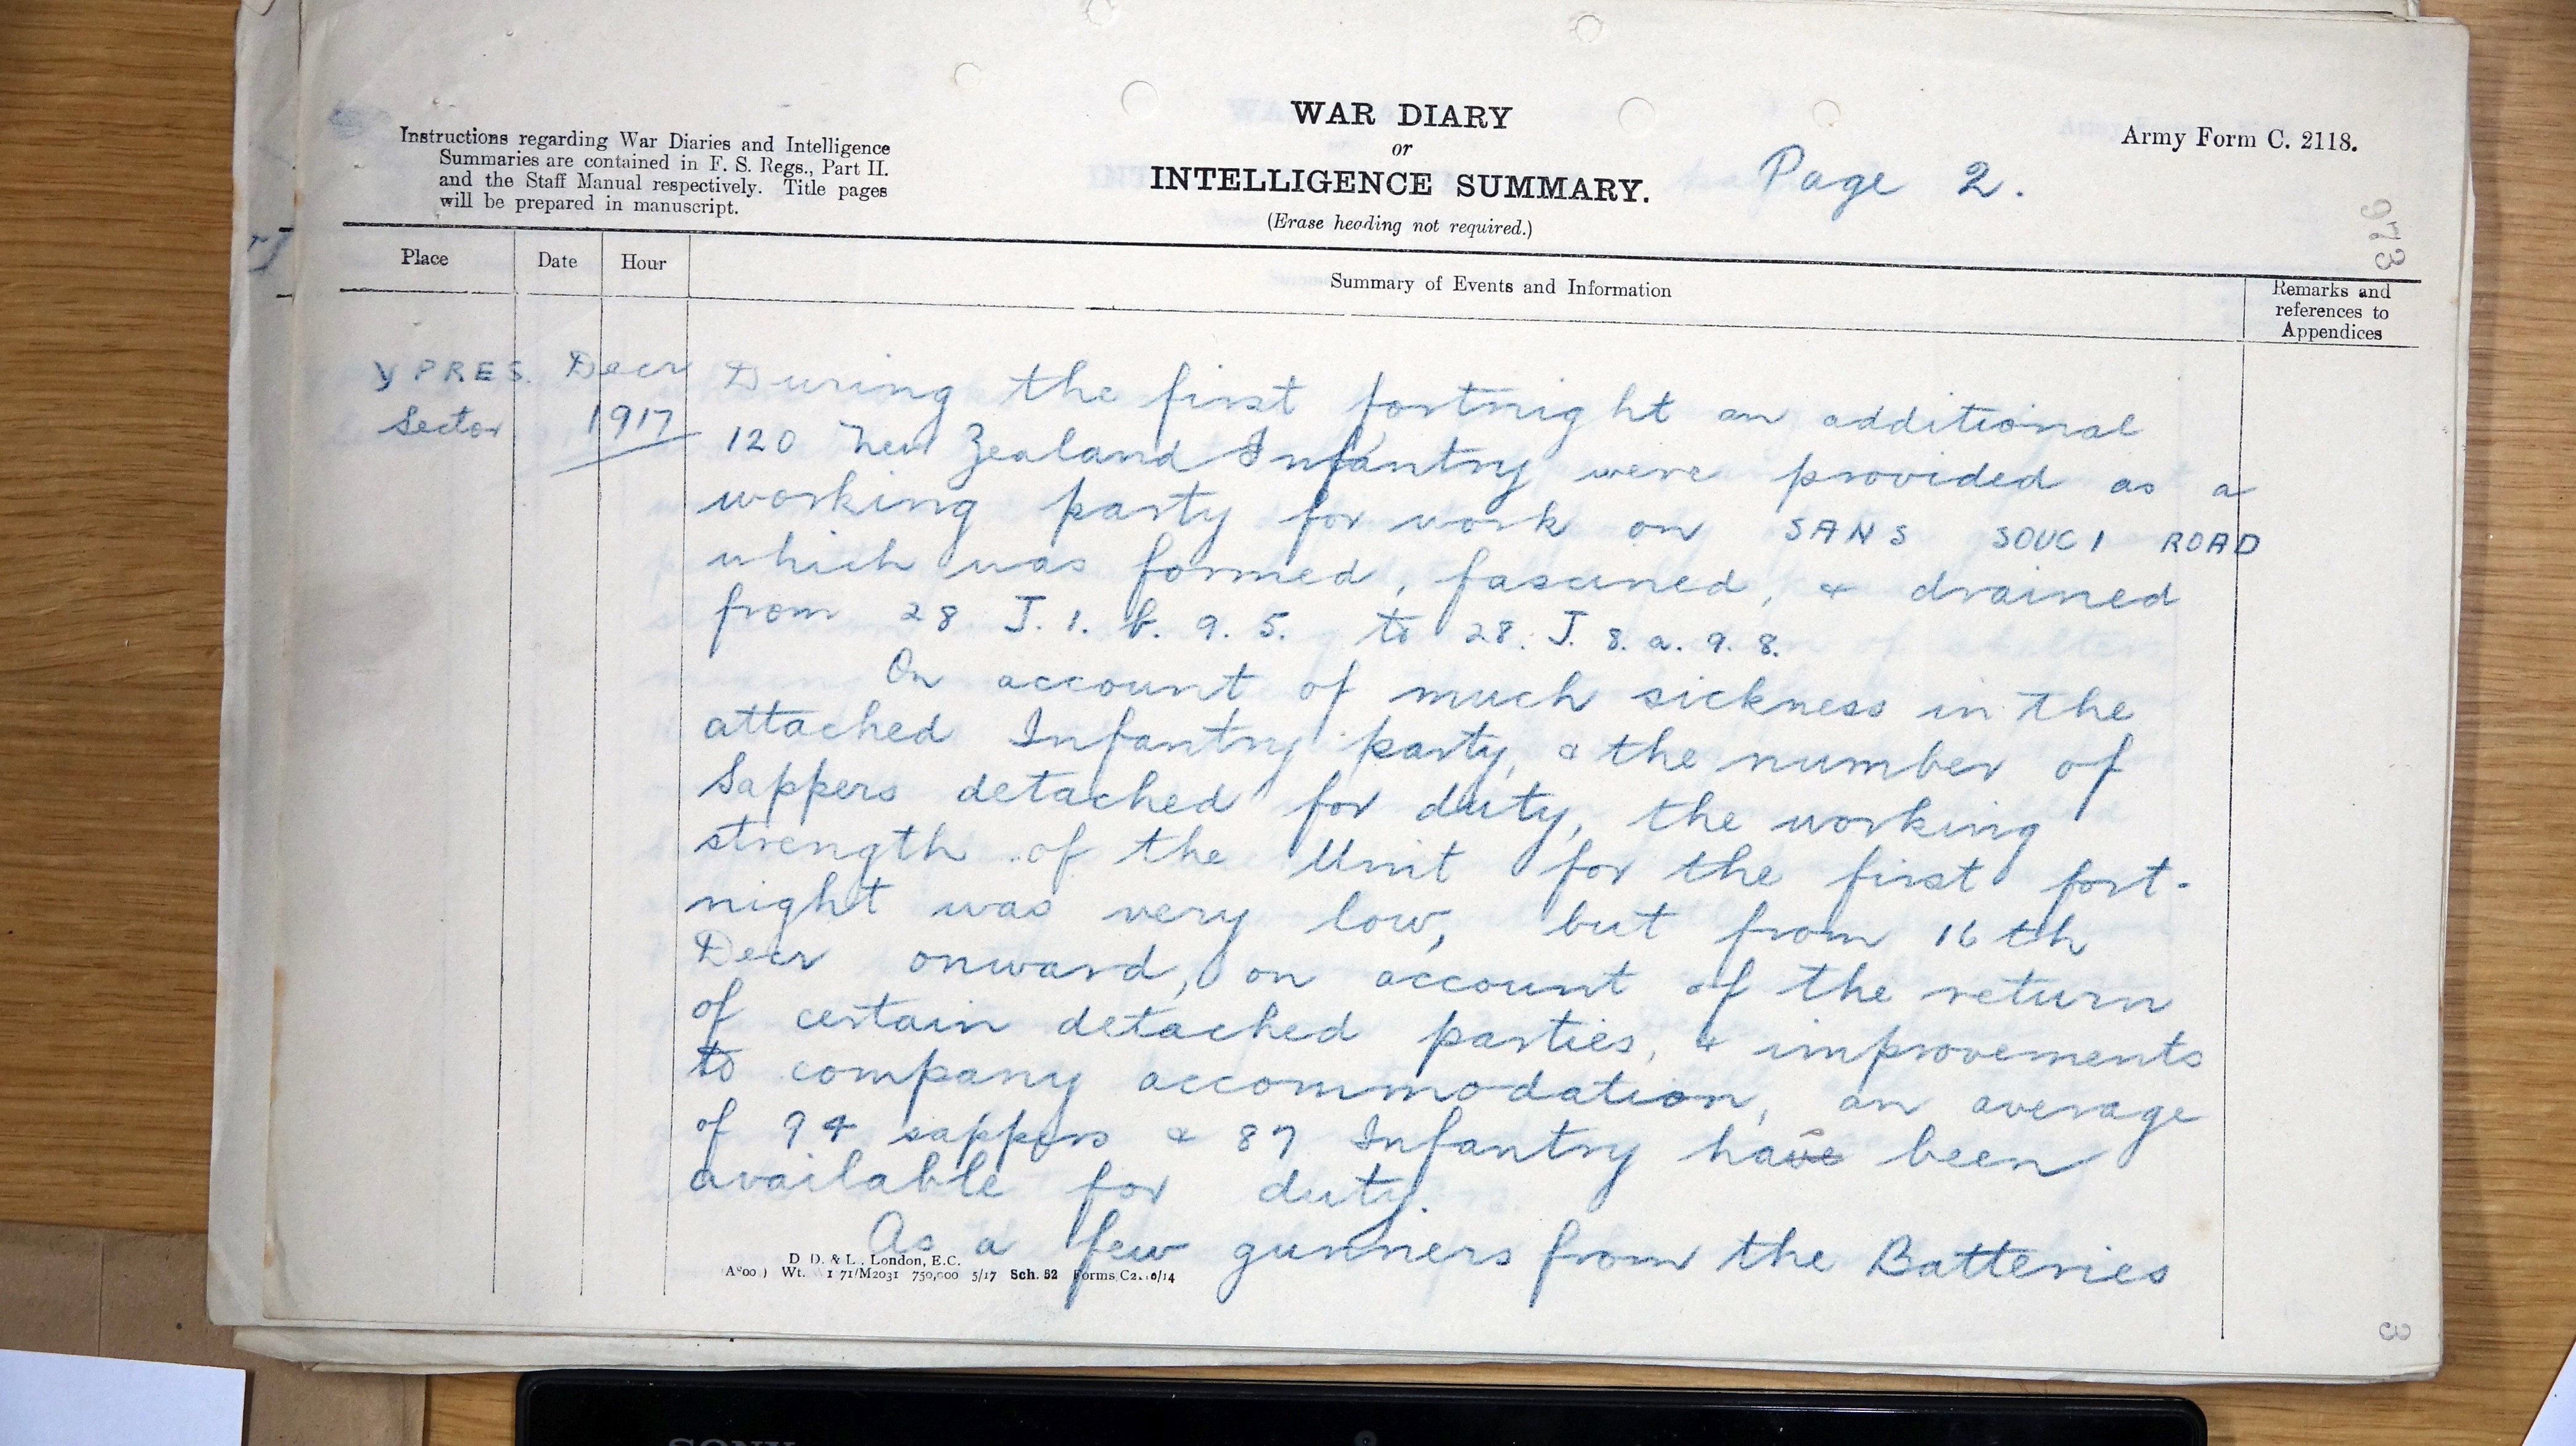 WAR DIARY
or
INTELLIGENCE SUMMARY.
(Erase heading not required.)
Instructions regarding War Diaries and Intelligence
Summaries are contained in F. S. Regs., Part II.
and the Staff Manual respectively. Title pages
will be prepared in manuscript.
Page 2.
Army Form C. 2118.
973
Place
Date
Hour
Summary of Events and Information
Remarks and
references to
Appendices
YPRES
Sector
Decr
1917
During the first fortnight an additional
120 New Zealand Infantry were provided as a
working party for work on SANS SOUCI ROAD
which was formed, fascined, & drained
from 28 J. 1. b. 9. 5. to 28. J. 8. a. 9. 8.
On account of much sickness in the
attached Infantry party, & the number of
Sappers detached for duty, the working
strength of the Unit for the first fort-
night was very low, but from 16th
Decr onward, on account of the return
of certain detached parties, & improvements
to company accommodation, an average
of 94 sappers & 87 Infantry have been
available for duty.
As a few gunners from the Batteries
D. D. & L., London, E.C.
Wt. 71/M2031 750,000 5/17 Sch. 52 Forms
3
SONY